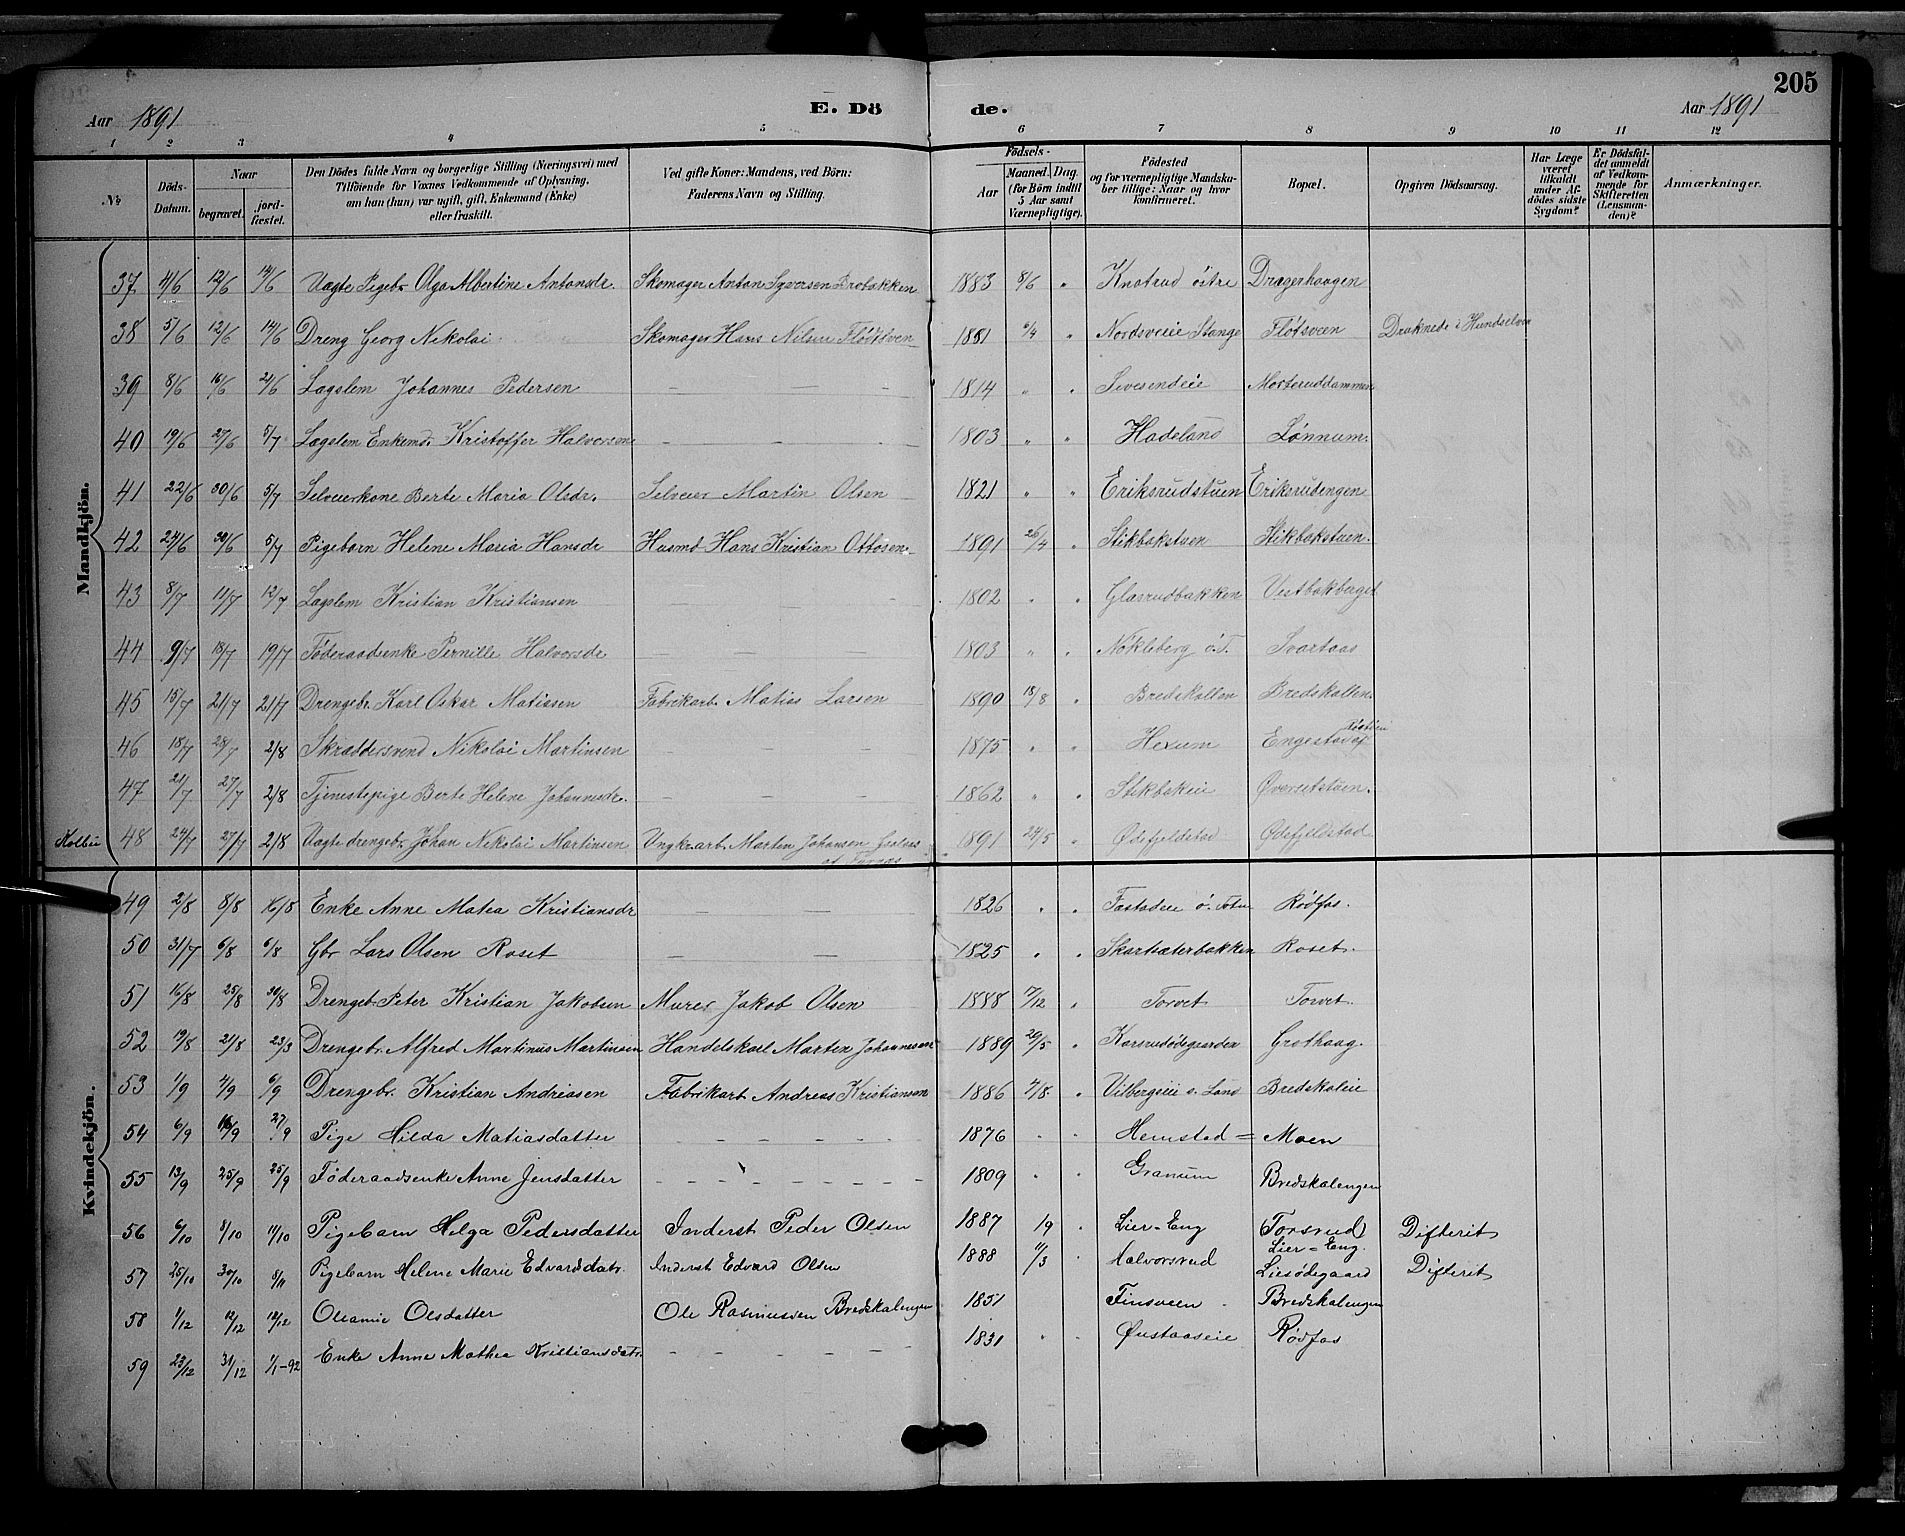 205
Aar 1891 E. Dö de. Aar 1891
1 2 3 4 5 6 7 8 9 10 11 12
No Döds-Datum. Naar begravet. jord-fæstet. Den Dödes fulde Navn og borgerlige Stilling (Næringsvei) med Tilföiende for Voxnes Vedkommende af Oplysning, om han (hun) var ugift, gift, Enkemand (Enke) eller fraskilt. Ved gifte Koner: Mandens, ved Börn: Faderens Navn og Stilling. Födsels- Aar Maaned. Dag. (for Börn indtil 5 Aar samt Værnepligtige). Födested og for værnepligtige Mandskaber tillige: Naar og hvor konfirmeret. Bopæl. Opgiven Dödsaarsag. Har Læge været tilkaldt under Afdödes sidste Sygdom? Er Dödsfaldet anmeldt af Vedkommende for Skifteretten (Lensmanden)? Anmærkninger.
Mandkjön.
37 4/6 12/6 14/6 Uægte Pigebr. Olga Albertine Antonsdr. Skomager Anton Syversen Brobakken 1883 8/6 " Knatrud östre Dragerhaugen
38 5/6 12/6 14/6 Dreng Georg Nikolai Skomager Hans Nilsen Flödtsven 1881 /4 " Nordsveie Stange Flötsveen Druknede i Hundselven
39 8/6 16/6 21/6 Lægslem Johannes Pedersen — — — 1814 " " Sevesendeie Mosteruddammen
40 19/6 27/6 5/7 Lægslem Enkemd. Kristoffer Halvorsen — — — 1803 " " Hadeland Lönnum.
41 22/6 30/6 5/7 Selveierkone Berte Maria Olsdr. Selveier Martin Olsen 1821 " " Eriksrudstuen Eriksrudengen
42 24/6 30/6 5/7 Pigebarn Helene Maria Hansdr Husmd Hans Kristian Ottosen. 1891 26/4 " Stikbakstuen Stikbakstuen.
43 8/7 11/7 12/7 Lægslem Kristian Kristiansen — — — 1802 " " Glæsrudbakken Vestbakberget
44 9/7 18/7 19/7 Föderaadsenke Pernille Halvorsdr — — — 1803 " " Nökleberg ö.T. Svartaas
45 15/7 21/7 21/7 Drengebr. Karl Oskar Matiasen Fabrikarb. Matias Larsen 1890 18/8 " Bredskallen Bredskallen.
46 18/7 28/7 2/8 Skræddersvend Nikolai Martinsen — — — 1875 " " Hexum Engestad
47 21/7 27/7 2/8 Tjenestepige Berte Helene Johannesdr. — — — 1862 " " Stikbakeie Översetstuen.
Kolbu 48 24/7 27/7 2/8 Uægte drengebr. Johan Nikolai Martinsen Ungkr.arb. Martin Johansen 1891 24/5 " Ödefjeldstad Ödefjeldstad
Kvindekjön.
49 2/8 8/8 16/8 Enke Anne Matea Kristiansdr — — — 1826 " " Fastadeie ö. Toten Rödfos.
50 31/7 6/8 6/8 Gbr Lars Olsen Roset — — 1825 " " Skartsæterbakken Roset.
51 16/8 25/8 30/8 Drengebr. Peter Kristian Jakobsen Murer Jakob Olsen 1888 17/12 " Torvet Torvet.
52 19/8 21/8 23/8 Drengebr. Alfred Martinus Martinsen Handelskarl Martin Johannesen 1889 20/5 " Karsrudödegaarden Grothaug.
53 1/9 4/9 6/9 Drengebr. Kristian Andreasen Fabrikarb Andreas Kristiansen 1886 4/8 " Vilbergseie s. Land Bredskaleie
54 6/9 16/9 27/9 Pige Hilda Matiasdatter — — — 1876 " " Hemstad = Moen
55 13/9 25/9 25/9 Föderaadsenke Anne Jensdatter — — — 1809 " " Granum Bredskalengen
56 6/10 8/10 11/10 Pigebarn Helga Pedersdatter Inderst Peder Olsen 1887 1/9 Lier-Eng Torsrud Lier=Eng. Difterit
57 25/10 30/10 8/11 Pigebarn Helene Marie Edvardsdatr. Inderst Edvard Olsen 1888 11/3 Halvorsrud Liesödegaard Difterit
58 1/12 12/12 12/12 Oleanie Olsdatter Ole Rasmussen Bredskalengen 1851 Finsveen Bredskalengen
59 23/12 31/12 1/1-92 Enke Anne Mathea Kristiansdatr. — — — 1831 " " Östaaseie Rödfos